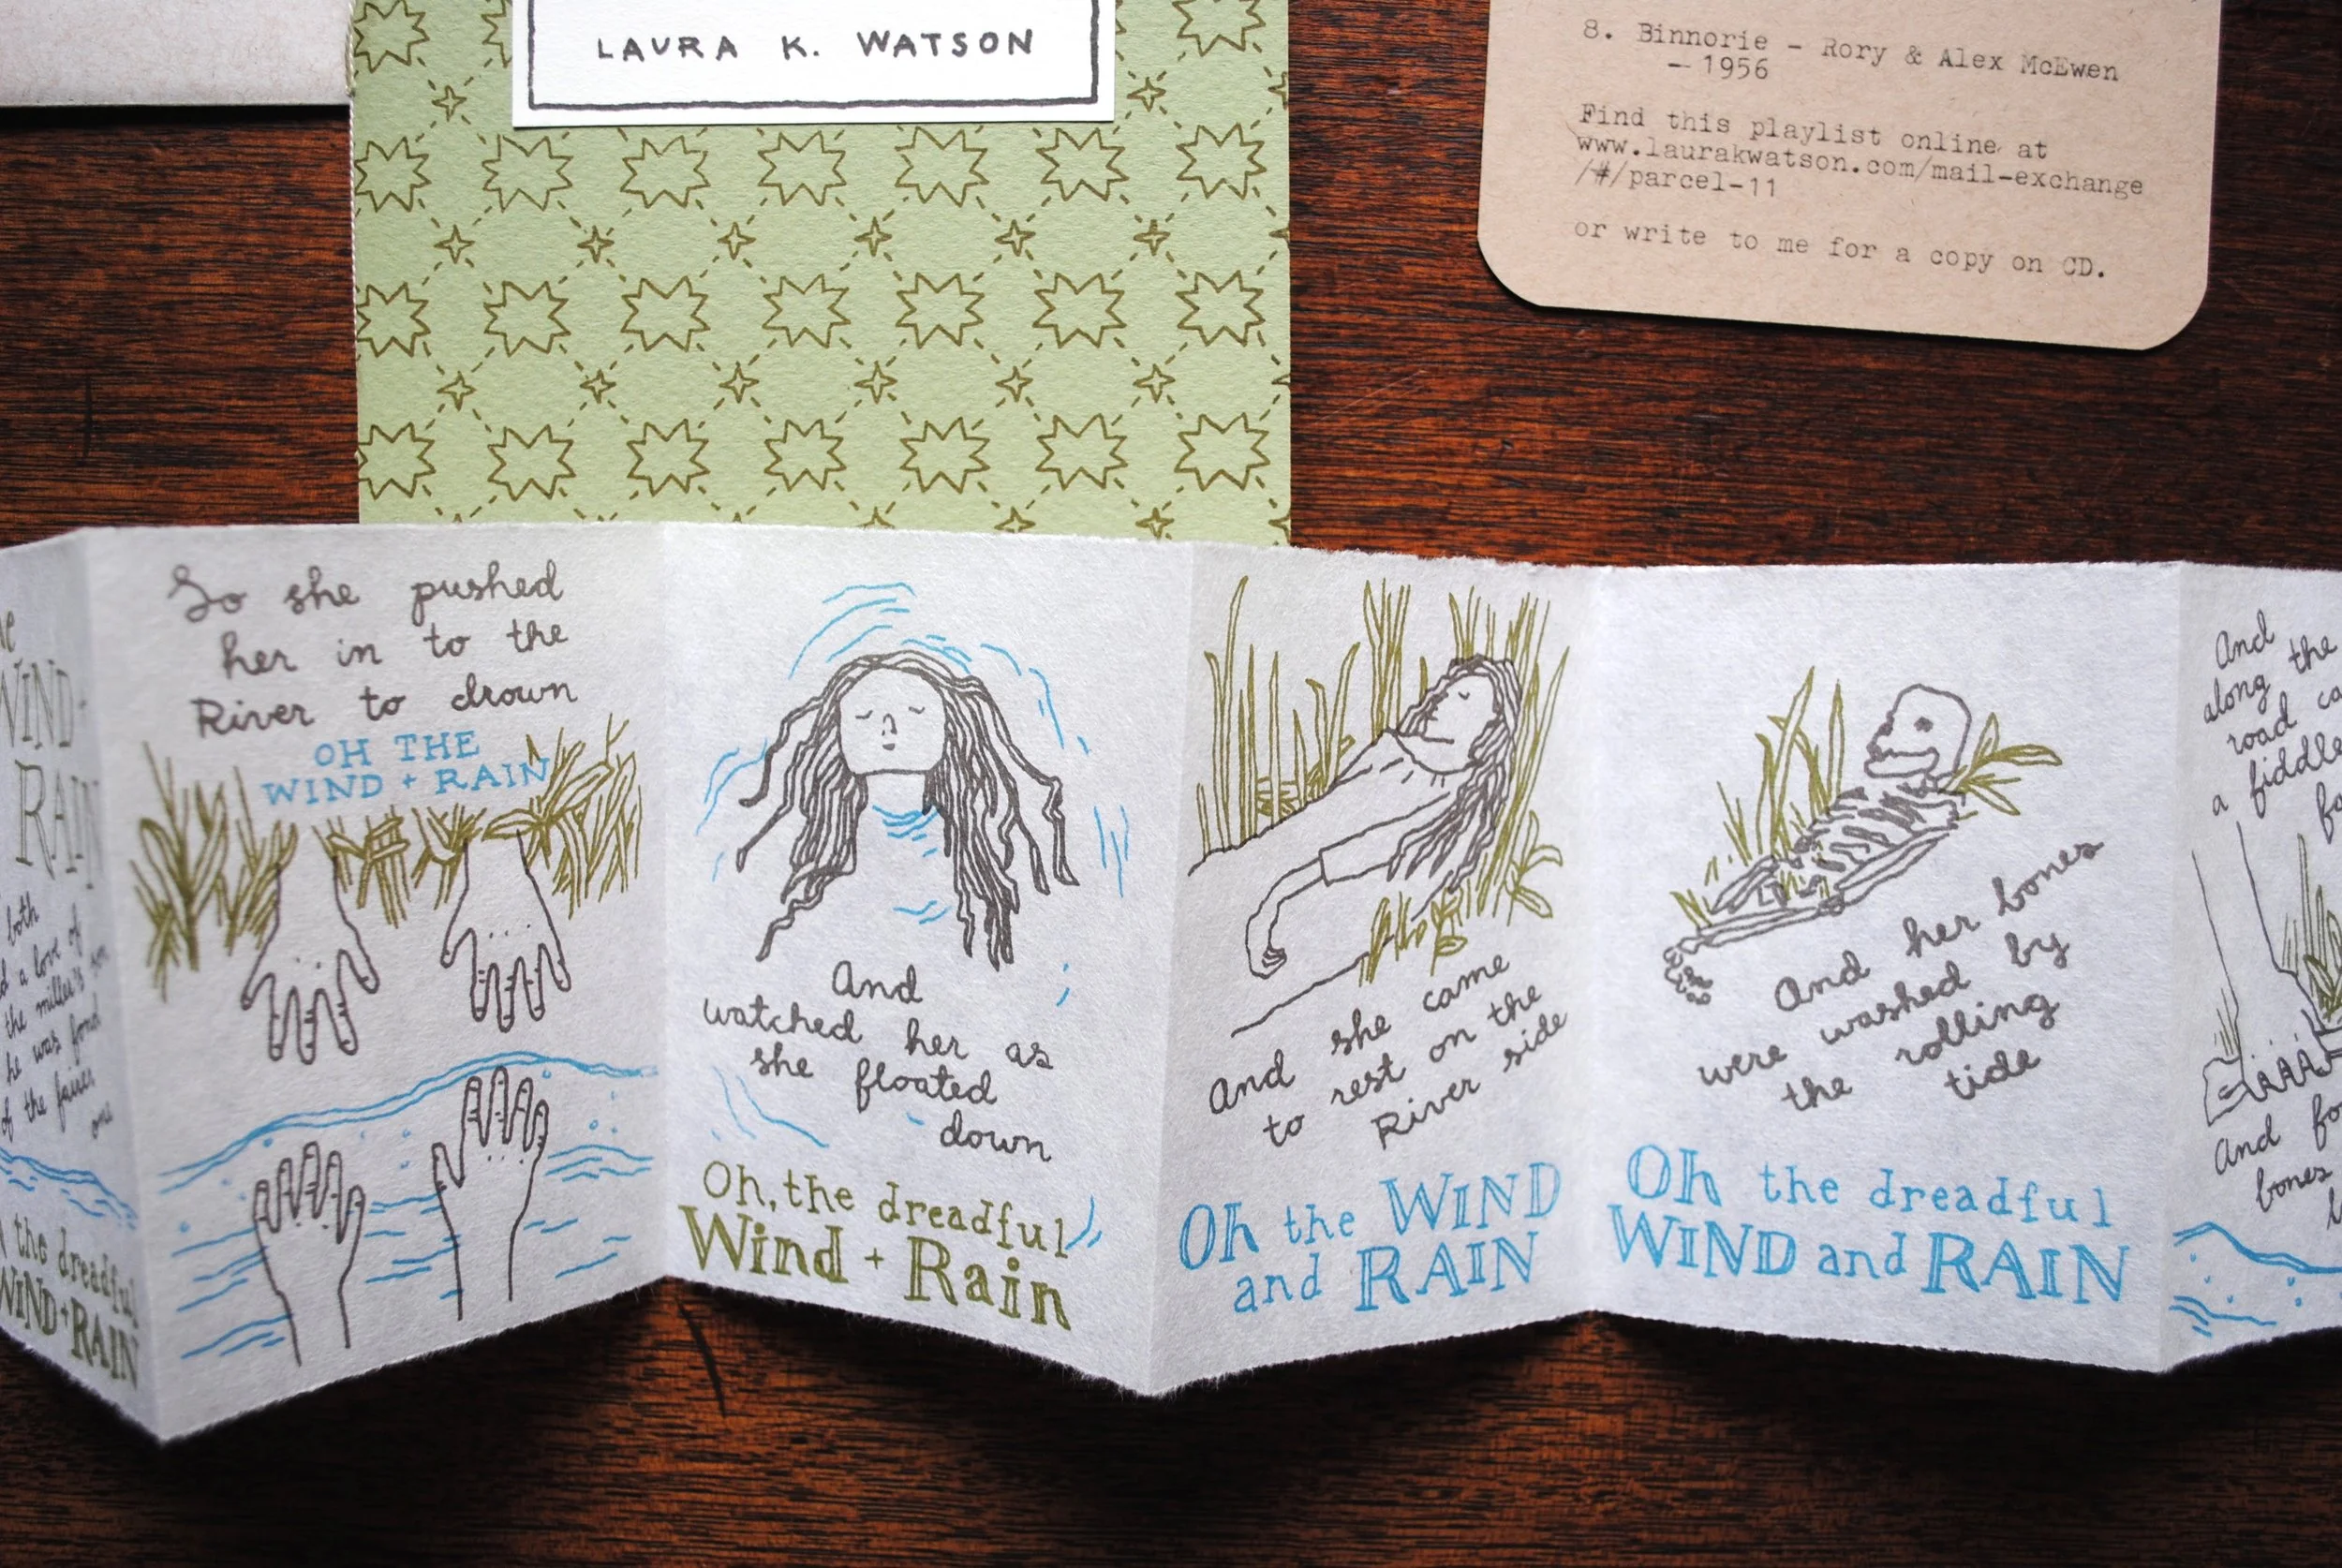 LAURA K. WATSON
8. Binnorie - Rory & Alex McEwen
- 1956
Find this playlist online at
www.laurakwatson.com/mail-exchange
/#/parcel-11
or write to me for a copy on CD.
WIND +
RAIN
both
a love of
the miller's
he was fond
of the fairer
one
the dreadful
WIND + RAIN
So she pushed
her in to the
River to drown
OH THE
WIND + RAIN
And
watched her as
she floated
down
Oh, the dreadful
Wind + Rain
And she came
to rest on the
River side
Oh the WIND
and RAIN
And her bones
were washed by
the rolling
tide
Oh the dreadful
WIND and RAIN
And
along the
road
a fiddle
And
bones